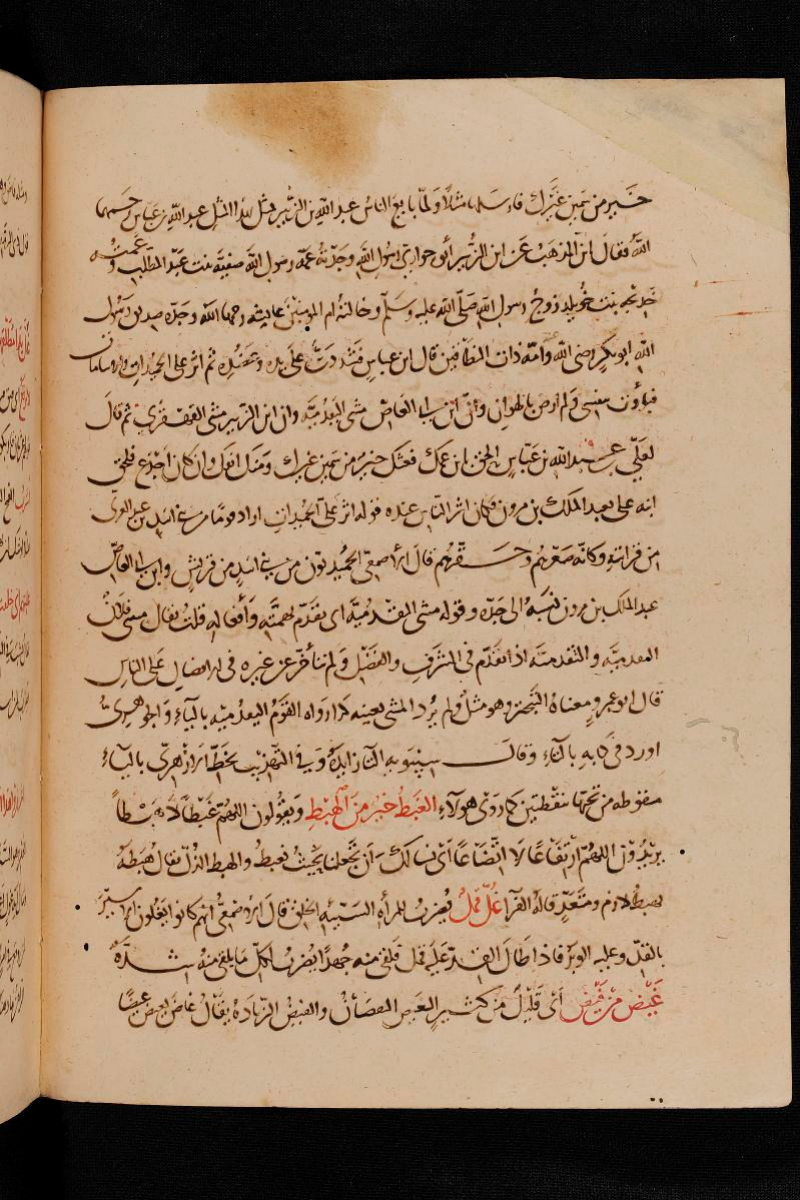 خير من سمين غيرك فارسلها مثلا ولما بايع الناس عبد الله بن الزبير تمثل بهذا المثل عبد الله بن عباس رحمهما
الله فقال اين المذهب عن ابن الزبير ابوه حواري رسول الله وجدته عمة رسول الله صفية بنت عبد المطلب وعمته
خديجة بنت خويلد زوج رسول الله صلى الله عليه وسلم وخالته ام المومنين عايشة رحمها الله وجده صديق رسول
الله ابو بكر رضى الله وامه ذات النطاقين قال ابن عباس فشددت على يده وعضده ثم اثر على الحميدات والاسامات
فبأوت بنفسى ولم ارض بالهوان وان ابن ابي العاص مشى اليقدمية وان ابن الزبير مشى القهقرى ثم قال
لعلي بن عبد الله بن عباس الحق بابن عمك فغثك خير من سمين غيرك ومنك انفك وان كان اجدع فلحق
ابنه علي بعبد الملك بن مرون فكان اثر الناس عنده قوله اثر على الحميدات اراد قوما من بني اسد بن عبد العزى
من قرابته وكانه صغرهم وحقرهم قال الاصمعي الحميديون من بني اسد من قريش وابن ابي العاص
عبد الملك بن مرون نسبه الى جده وقوله مشى القدمية اى تقدم بهمته وأفعاله قلت يقال مشى فلان
القدمية والتقدمية اذا تقدم في الشرف والفضل ولم يتأخر عن غيره في الافضال على الناس
قال ابو عمرو معناه التبختر وهو مثل ولم يرد المشى بعينه كذا رواه القوم اليقدمية بالياء والجوهري
اورد في كتابه بالتاء وقال سيبويه التاء زايدة وفي التهذيب بخط الازهرى بالياء
منقوطة من تحتها بنقطتين كما روى هولاء الغبط خير من الهبط ويقولون اللهم غبطا لا هبطا
يريدون اللهم ارتفاعا لا اتضاعا أى نسالك أن تجعلنا بحيث نغبط والهبط الذل يقال هبطه
فهبط لازم ومتعد قاله الفرا غل قمل يضرب للمرأة السيئة الخلق قال الاصمعي انهم كانوا يغلون الاسير
بالقد وعليه الوبر فاذا طال القد عليه قمل فلقى منه جهدا يضرب لكل ما يلقى منه شدة
غيض من فيض أى قليل من كثير الغيض النقصان والفيض الزيادة يقال غاض يغيض غيضا